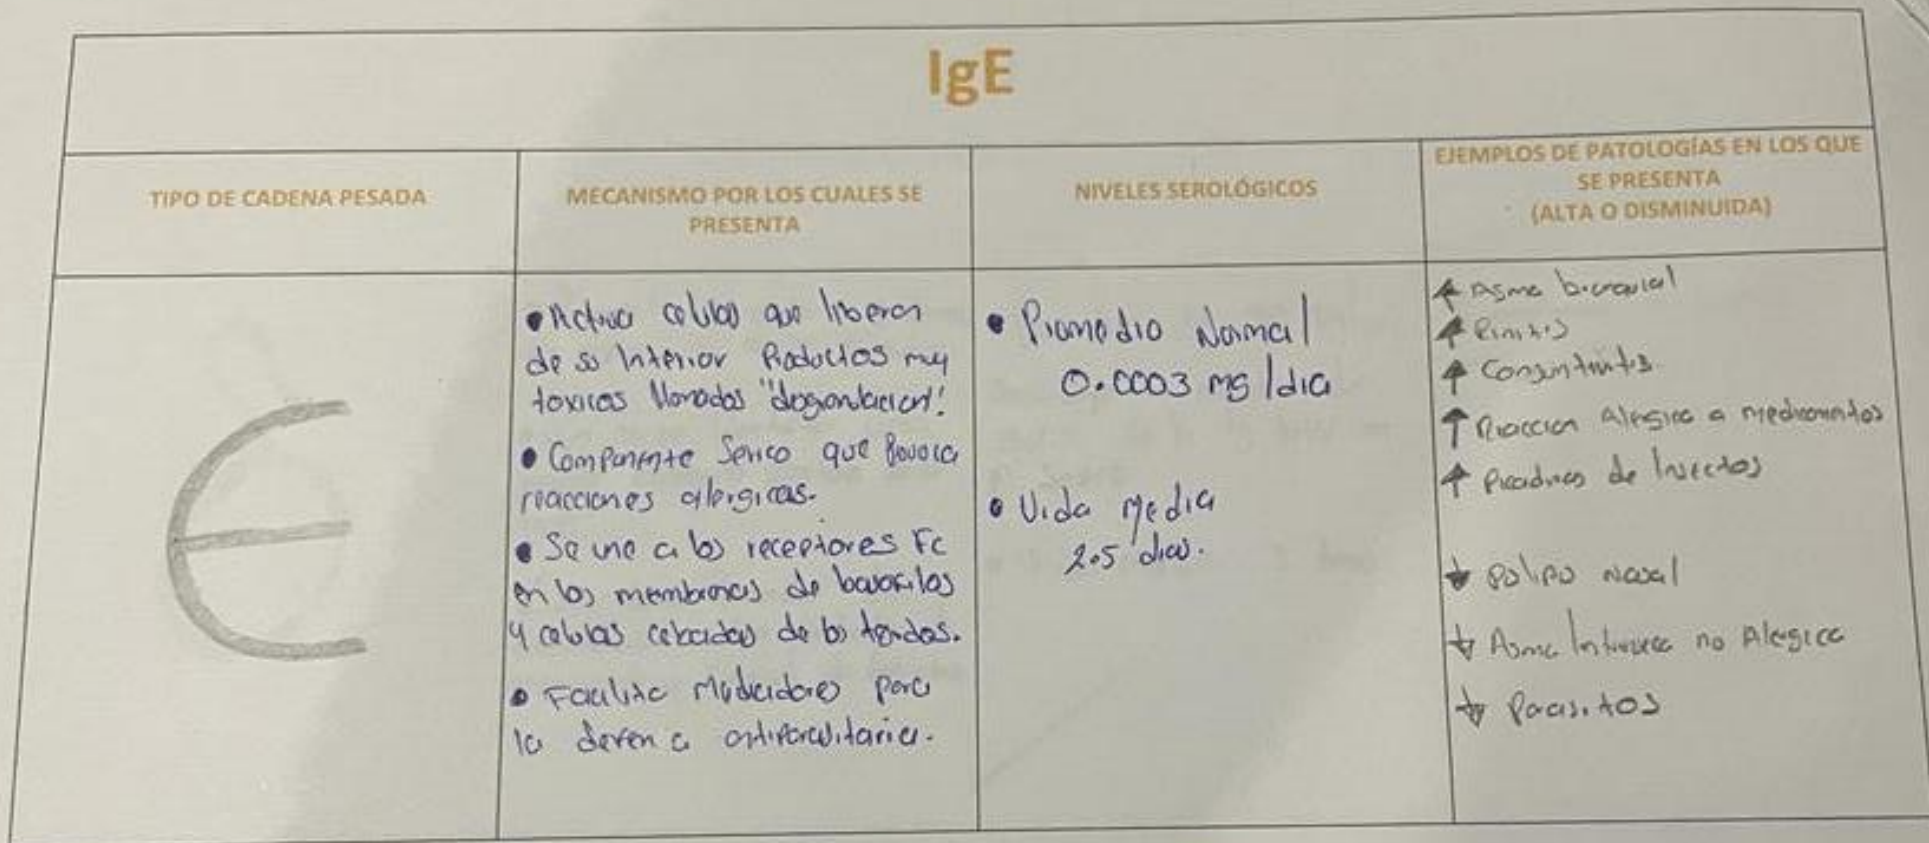 IgE
TIPO DE CADENA PESADA
MECANISMO POR LOS CUALES SE
PRESENTA
NIVELES SEROLÓGICOS
EJEMPLOS DE PATOLOGÍAS EN LOS QUE
SE PRESENTA
(ALTA O DISMINUIDA)
Є
• Activa celulas que liberan
de su Interior Productos muy
toxicos llamados "degranulacion".
• Componente Serico que Provoca
reacciones alergicas.
• Se une a los receptores Fc
en las membranas de basofilos
y celulas cebadas de los tejidos.
• Facilita Mediadores para
la defensa antiparasitaria.
• Promedio Normal
0.0003 mg/dia
• Vida Media
2.5 dias.
↑ Asma bronquial
↑ Rinitis
↑ Conjuntivitis
↑ Reaccion Alergica a medicamentos
↑ Picaduras de Insectos
↓ Polipo Nasal
↓ Asma Intrinseca no Alergica
↓ Parasitos